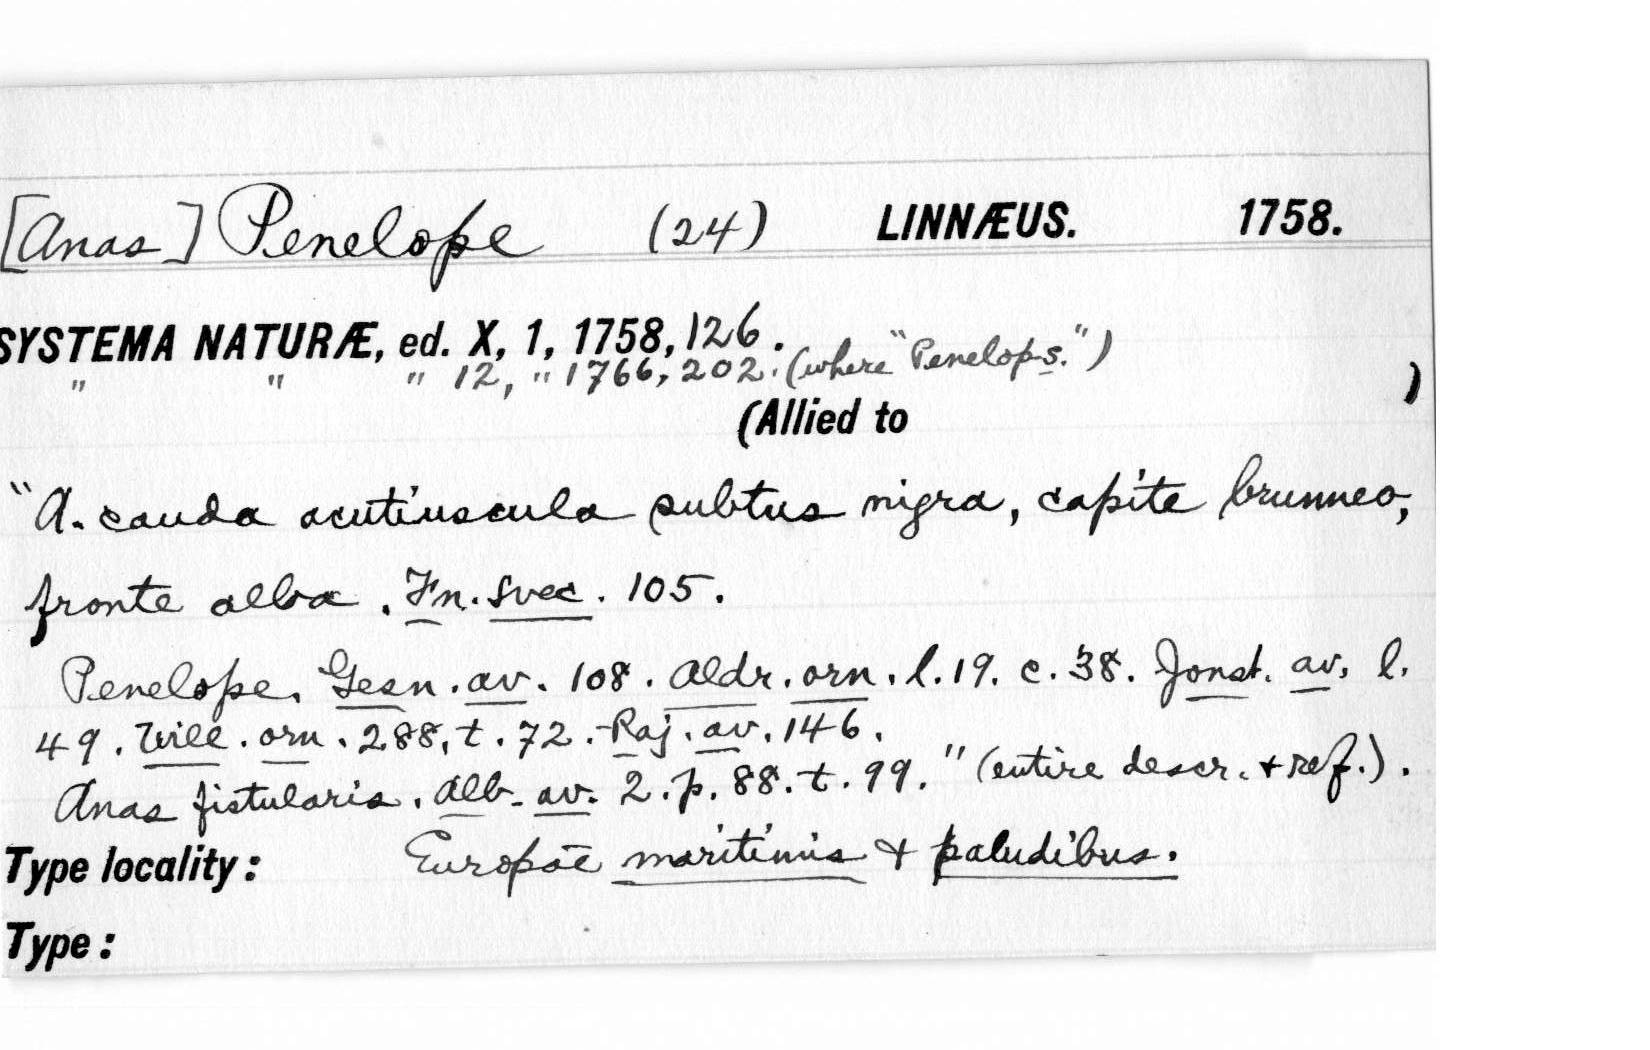 [Anas] Penelope (24) LINNÆUS. 1758.
SYSTEMA NATURÆ, ed. X, 1, 1758, 126.
" " " 12, " 1766, 202. (where "Penelops.")
(Allied to )
"A. cauda acutiuscula subtus nigra, capite brunneo,
fronte alba. Fn. Svec. 105.
Penelope. Gesn. av. 108. Aldr. orn. l. 19. c. 38. Jonst. av. l.
49. Will. orn. 288, t. 72. Raj. av. 146.
Anas fistularis. Alb. av. 2. p. 88. t. 99." (entire descr. + ref.).
Type locality: Europae maritimis & paludibus.
Type: